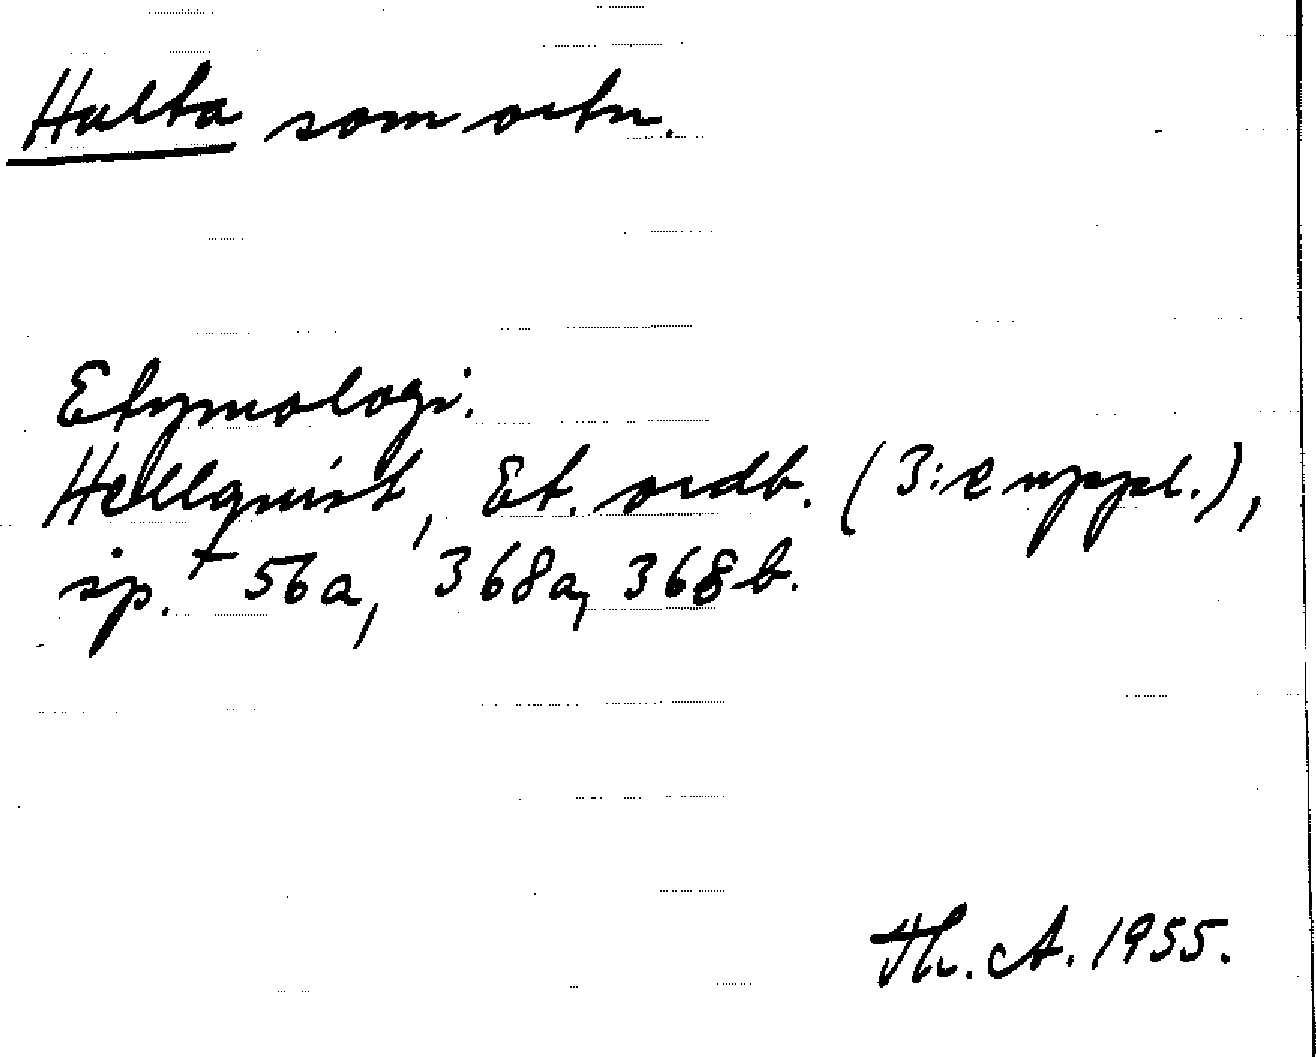 Hulta som ortn.
Etymologi.
Hellquist, Et. ordb. (3:e uppl.),
sp. 56a, 368a, 368b.
Th. A. 1955.